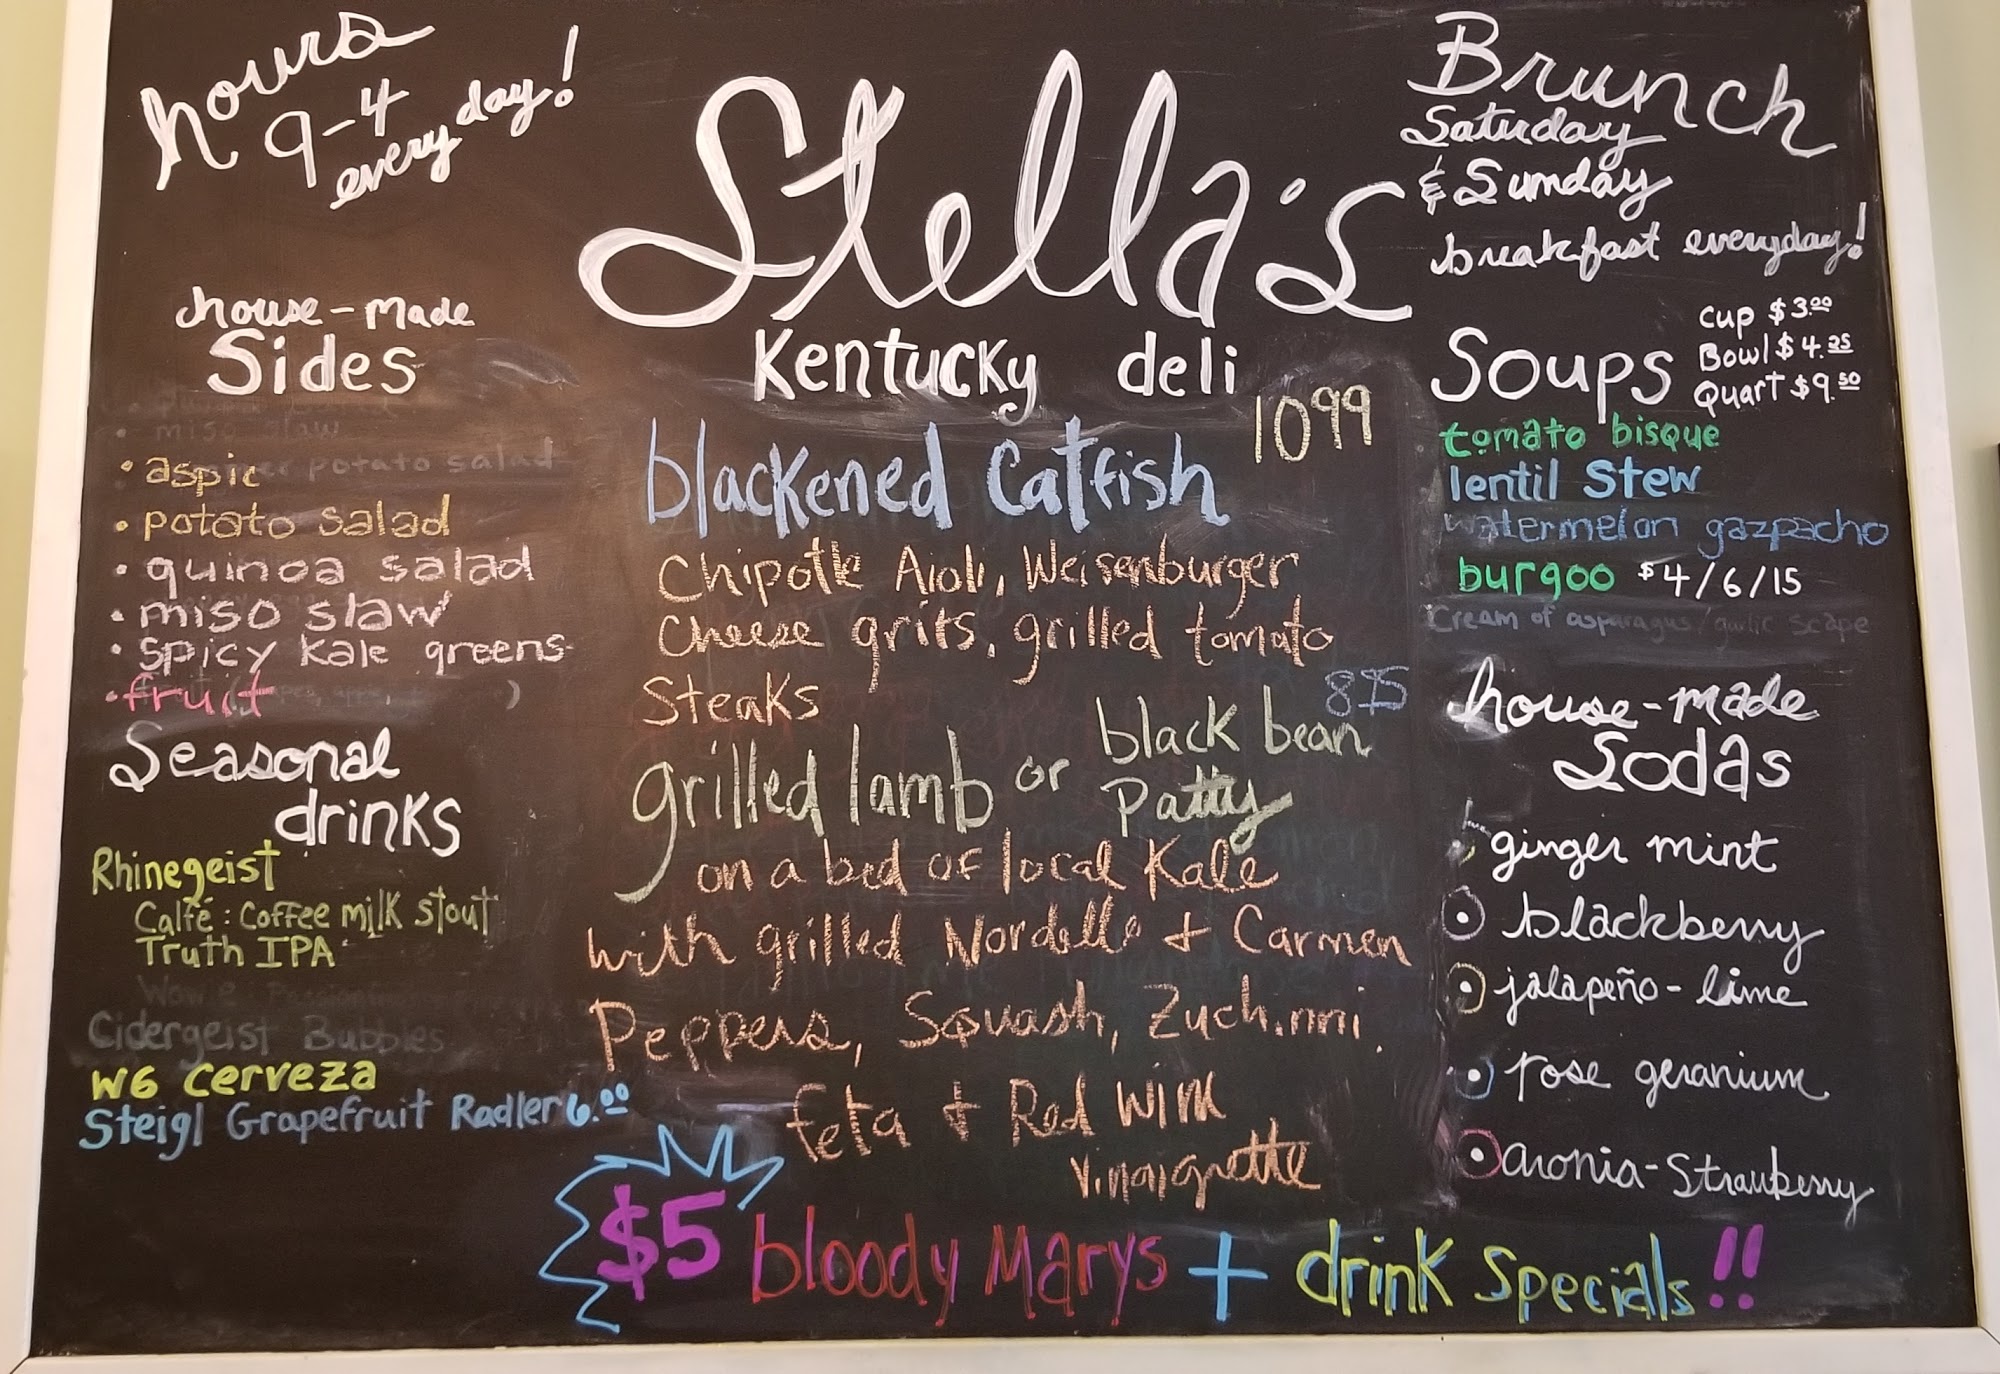 hours
9-4
every day!
Stella's
Kentucky deli
Brunch
Saturday
& Sunday
breakfast everyday!
house-made
Sides
miso slaw
potato salad
• aspic
• potato salad
• quinoa salad
• miso slaw
• spicy kale greens
• fruit
Seasonal
drinks
Rhinegeist
Calfé: Coffee milk stout
Truth IPA
Cidergeist Bubbles
W6 Cerveza
Steigl Grapefruit Radler 6.00
blackened Catfish 1099
Chipotle Aioli, Weisenburger
Cheese grits, grilled tomato
Steaks
875
grilled lamb or black bean
Patty
on a bed of local Kale
with grilled Nordello + Carmen
Peppers, Squash, Zuchinni,
feta + Red Wine
Vinaigrette
Soups
Cup $3.00
Bowl $4.25
Quart $9.50
tomato bisque
lentil Stew
watermelon gazpacho
burgoo $4/6/15
Cream of asparagus/garlic scape
house-made
Sodas
ginger mint
blackberry
jalapeño-lime
rose geranium
aronia-Strawberry
$5 bloody Marys + drink Specials!!